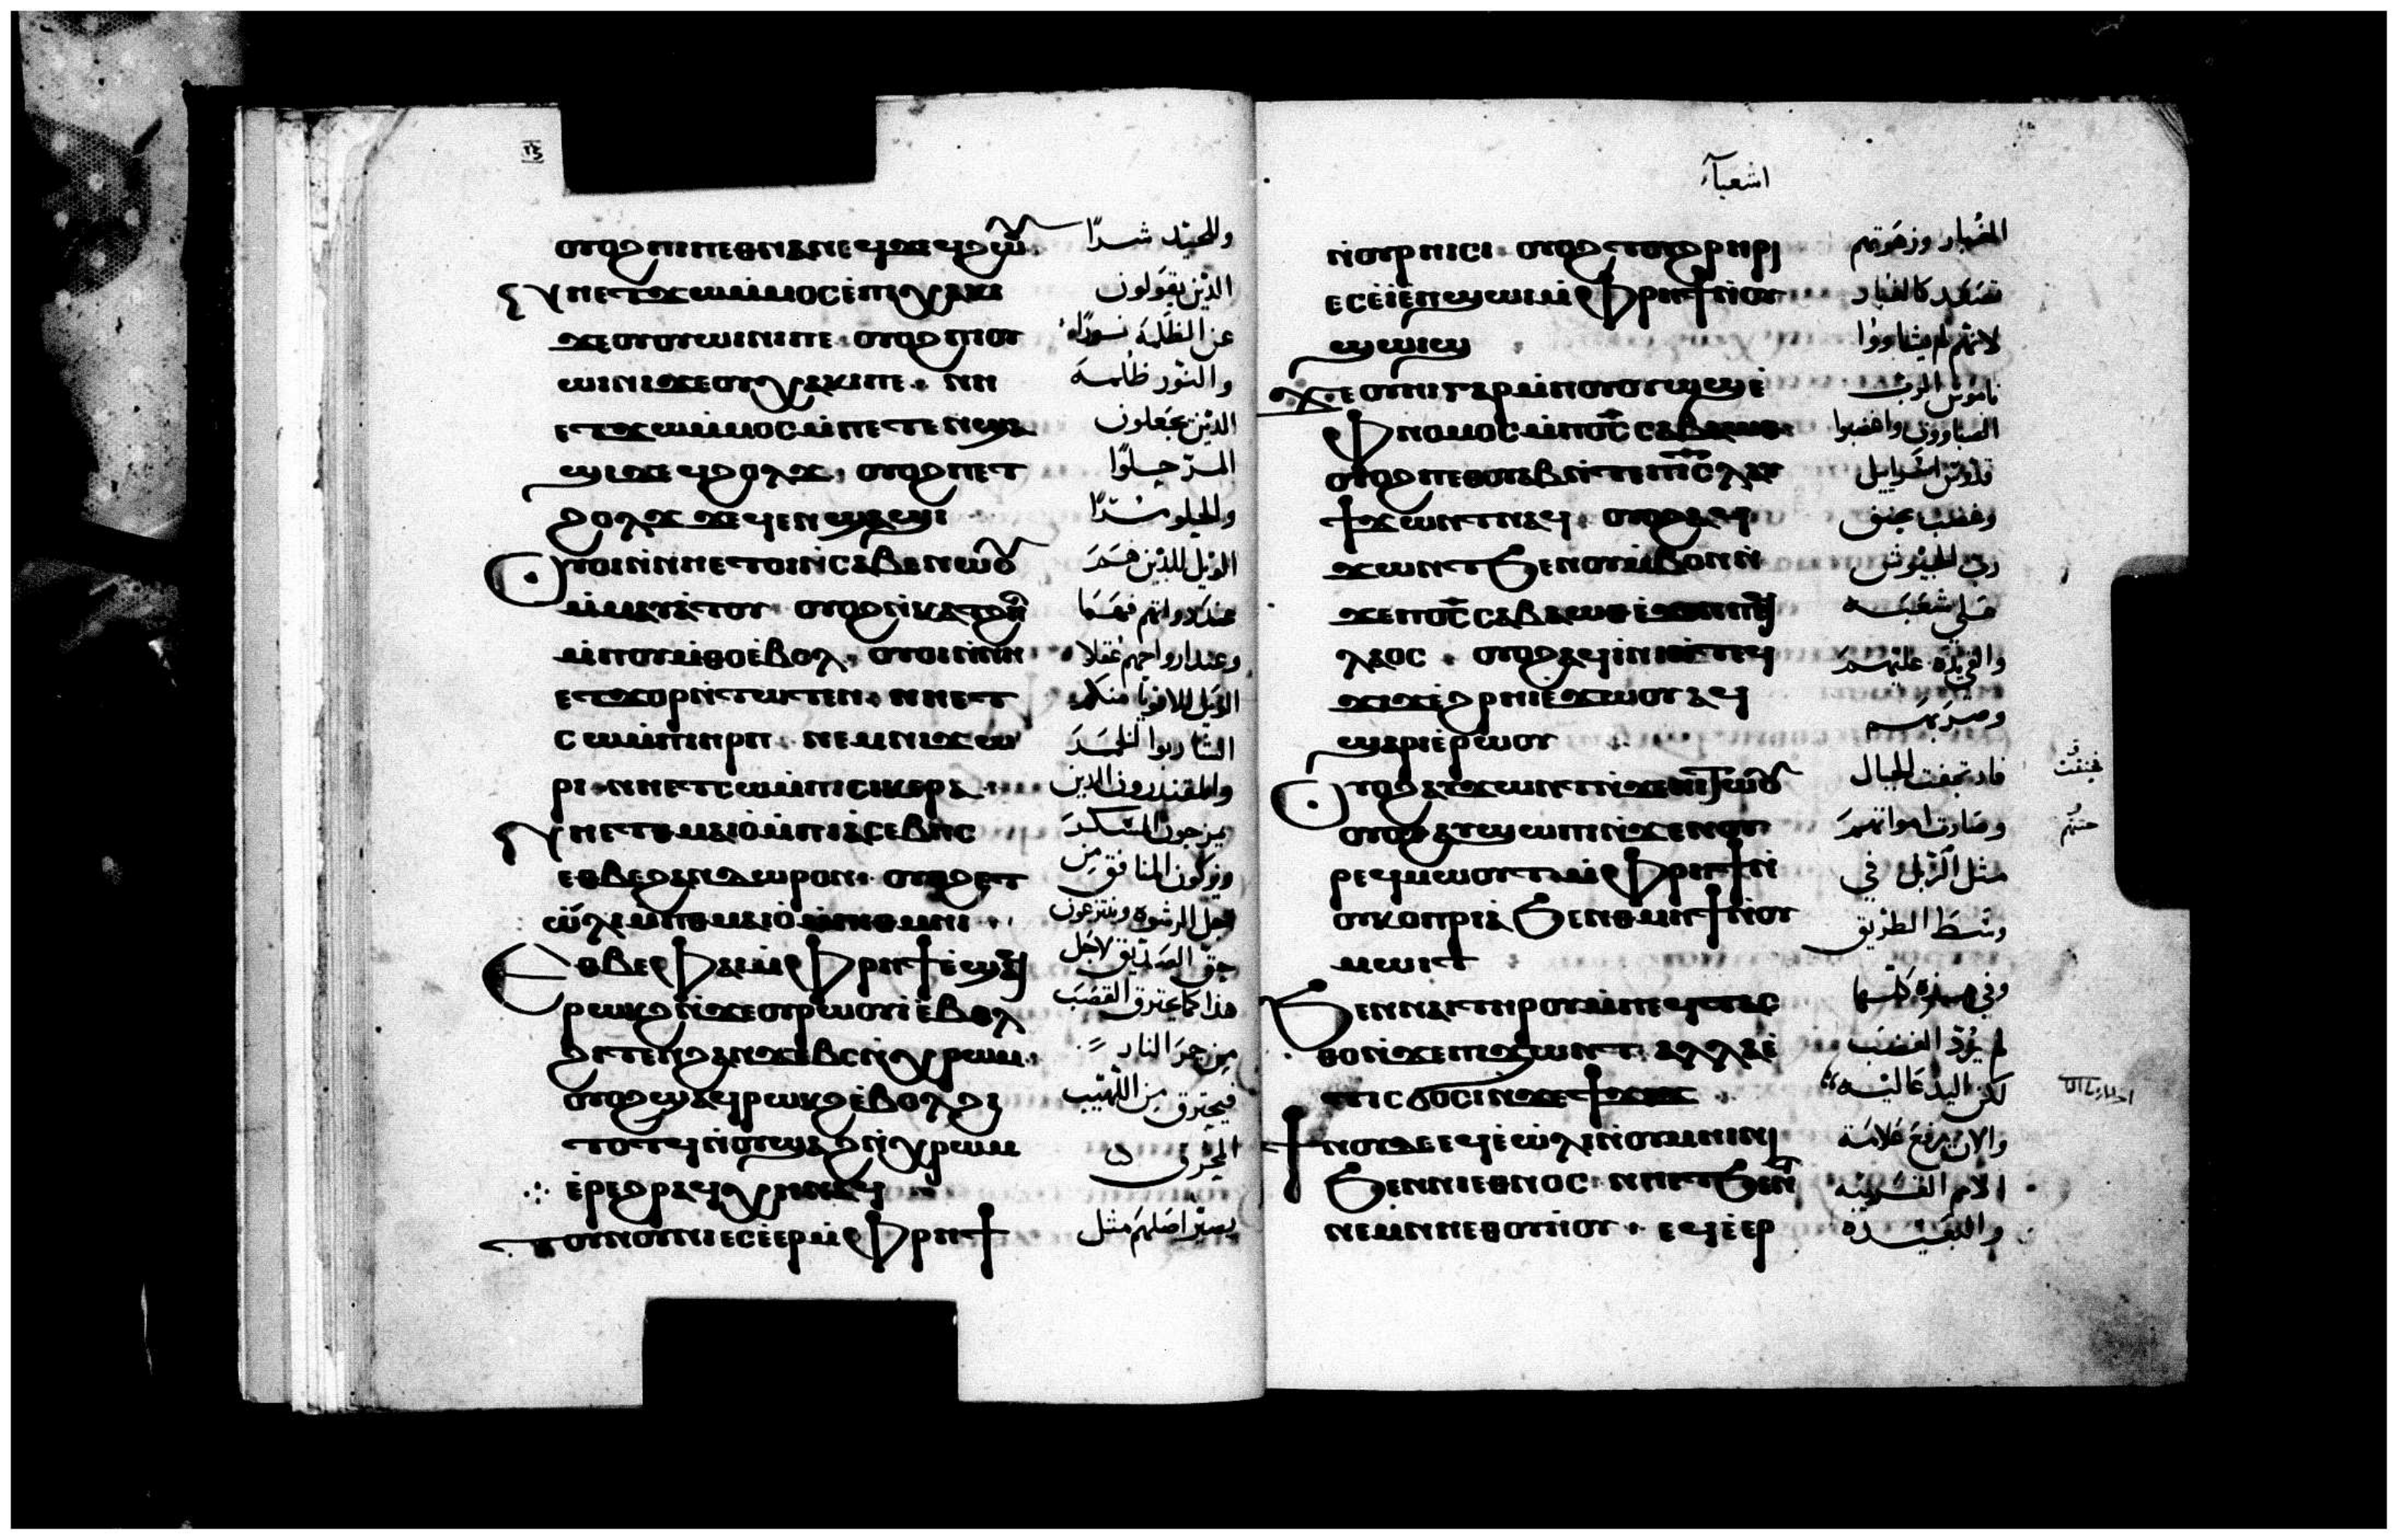 ⲟⲩⲟϩ ⲡⲓⲡⲉⲑⲛⲁⲛⲉϥ ϫⲉ ϥϩⲱⲟⲩ
ⲛⲏⲉⲧϫⲱ ⲙⲙⲟⲥ ⲉⲡⲓⲭⲁⲕⲓ
ϫⲉ ⲟⲩⲟⲩⲱⲓⲛⲓ ⲡⲉ ⲟⲩⲟϩ ⲡⲓⲟⲩ
ⲱⲓⲛⲓ ϫⲉ ⲟⲩⲭⲁⲕⲓ ⲡⲉ ⲛⲏ
ⲉⲧϫⲱ ⲙⲙⲟⲥ ⲙⲡⲉⲧⲉⲛϣⲁ
ϣⲓ ϫⲉ ϥϩⲟⲗϫ ⲟⲩⲟϩ ⲡⲉⲧ
ϩⲟⲗϫ ϫⲉ ϥⲉⲛϣⲁϣⲓ
ⲟⲩⲟⲓ ⲛⲛⲏⲉⲧⲟⲓ ⲛⲥⲁⲃⲉ ⲛⲱⲟⲩ
ⲙⲙⲁⲩⲁⲧⲟⲩ ⲟⲩⲟϩ ⲛⲕⲁⲧϩⲏⲧ
ⲙⲡⲟⲩⲙⲑⲟ ⲉⲃⲟⲗ ⲟⲩⲟⲓ ⲛⲛⲏ
ⲉⲧϫⲟⲣ ⲛⲧⲱⲧⲉⲛ ⲛⲏⲉⲧ
ⲥⲱ ⲙⲡⲓⲏⲣⲡ ⲛⲉⲙ ⲛⲓϫⲱ
ⲣⲓ ⲛⲏⲉⲧⲥⲱ ⲙⲡⲓⲥⲓⲕⲉⲣⲁ
ⲛⲏⲉⲧⲑⲙⲁⲓⲟ ⲙⲡⲓⲁⲥⲉⲃⲏⲥ
ⲉⲑⲃⲉ ϩⲁⲛⲇⲱⲣⲟⲛ ⲟⲩⲟϩ ⲉⲧ
ⲱⲗⲓ ⲙⲡⲑⲙⲁⲓⲟ ⲙⲡⲓⲑⲙⲏⲓ
ⲉⲑⲃⲉ ⲫⲁⲓ ⲙⲫⲣⲏϯ ⲉϣⲁϥ
ⲣⲱⲕϩ ⲛϫⲉ ⲟⲩⲣⲱⲟⲩⲓ ⲉⲃⲟⲗ
ϩⲓⲧⲉⲛ ϩⲁⲛϫⲉⲃⲥ ⲛⲭⲣⲱⲙ
ⲟⲩⲟϩ ϣⲁϥⲣⲱⲕϩ ⲉⲃⲟⲗ ϩⲓ
ⲧⲟⲧϥ ⲛⲟⲩϣⲁϩ ⲛⲭⲣⲱⲙ
ⲉⲣⲉ ϩⲣⲁϥ ⲭⲏ ⲛⲁϥ
ⲧⲟⲩⲛⲟⲩⲛⲓ ⲉⲥⲉⲉⲣ ⲙⲫⲣⲏϯ
وللجيّد شرًا
الذين يقولون
عن الظلمة نورًا
والنور ظلمة
الذين يجعلون
المرّ حلوًا
والحلو مرًا
الويل للذين هم
عند ذواتهم فهما
وعند ارواحهم عقلاء
الويل للاقويا منكم
الشاربوا الخمر
والمقتدرون الذين
يمزجون المسكر
ويزكون المنافق من
اجل الرشوة وينتزعون
حق الصديق لاجل
هذا كما يحترق القصب
من جمر النار
فيحترق من اللهيب
المحرق
يصير اصلهم مثل
اشعياء
ⲛⲟⲩⲣⲏⲓⲥⲓ ⲟⲩⲟϩ ⲧⲟⲩϩⲣⲏⲣⲓ
ⲉⲥⲉⲓ ⲉⲡϣⲱⲓ ⲙⲫⲣⲏϯ ⲛⲟⲩ
ϣⲱⲓϣ
ϫⲉ ⲟⲩⲏⲓ ⲅⲁⲣ ⲙⲡⲟⲩⲟⲩⲱϣ ⲉ
ⲫⲛⲟⲙⲟⲥ ⲙⲡϭⲥ ⲥⲁⲃⲁⲱⲑ
ⲟⲩⲟϩ ⲡⲉⲑⲟⲩⲁⲃ ⲛⲧⲉ ⲡⲓⲥⲗ ⲁⲩ
ϯϫⲱⲛⲧ ⲛⲁϥ ⲟⲩⲟϩ ⲁϥ
ϫⲱⲛⲧ ϧⲉⲛ ⲟⲩⲙⲃⲟⲛ ⲛ
ϫⲉ ⲡϭⲥ ⲥⲁⲃⲁⲱⲑ ⲉϫⲉⲛ ⲡⲉϥ
ⲗⲁⲟⲥ ⲟⲩⲟϩ ⲁϥⲓⲛⲓ ⲛⲧⲉϥ
ϫⲓϫ ⲉϩⲣⲏⲓ ⲉϫⲱⲟⲩ ⲁϥ
ϣⲁⲣⲓ ⲉⲣⲱⲟⲩ
ⲟⲩⲟϩ ⲁⲩϫⲱⲛⲧ ⲛϫⲉ ⲛⲓⲧⲱⲟⲩ
ⲟⲩⲟϩ ⲁⲩϣⲱⲡⲓ ⲛϫⲉ ⲛⲟⲩ
ⲣⲉϥⲙⲱⲟⲩⲧ ⲙⲫⲣⲏϯ ⲛ
ⲟⲩⲕⲟⲡⲣⲓⲁ ϧⲉⲛ ⲑⲙⲏϯ ⲛⲟⲩ
ⲙⲱⲓⲧ
ϧⲉⲛ ⲛⲁⲓ ⲧⲏⲣⲟⲩ ⲙⲡⲉϥⲧⲁⲥ
ⲑⲟ ⲛϫⲉ ⲡⲓϫⲱⲛⲧ ⲁⲗⲗⲁ ⲉ
ⲧⲓ ⲥϭⲟⲥⲓ ⲛϫⲉ ϯϫⲓϫ
ϯⲛⲟⲩ ⲇⲉ ⲉϥⲉⲱⲗⲓ ⲛⲟⲩⲙⲏⲓⲛⲓ
ϧⲉⲛ ⲛⲓⲉⲑⲛⲟⲥ ⲛⲏⲉⲧϧⲉⲛⲧ
ⲛⲉⲙ ⲛⲏⲉⲑⲟⲩⲏⲟⲩ ⲉϥⲉⲉⲣ
الغبار وزهرتهم
تصعد كالغبار
لانهم لم يشاووا
ناموس الرب
الصباووت واغضبوا
قدوس اسراييل
وغضب بحنق
رب الجيوش
على شعبه
والقى يده عليهم
وضربهم
فارتجفت الجبال
وصارت امواتهم
مثل الزبل في
وسط الطريق
وفي هذه كلها
لم يُردّ الغضب
لكن اليد عالية
والان يرفع علامة
الامم القريبة
والبعيدة